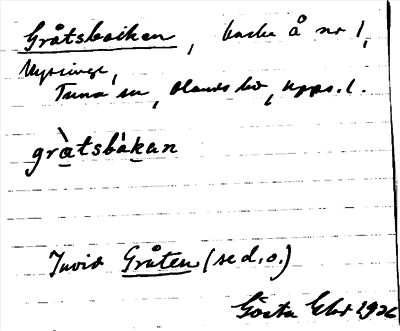 Gråtsbacken, backe å nr 1,
Tuna sn, Olands hd, Upps. l.
gràtsbàkan
Invid Gråten (se d. o.)
Gösta 1926